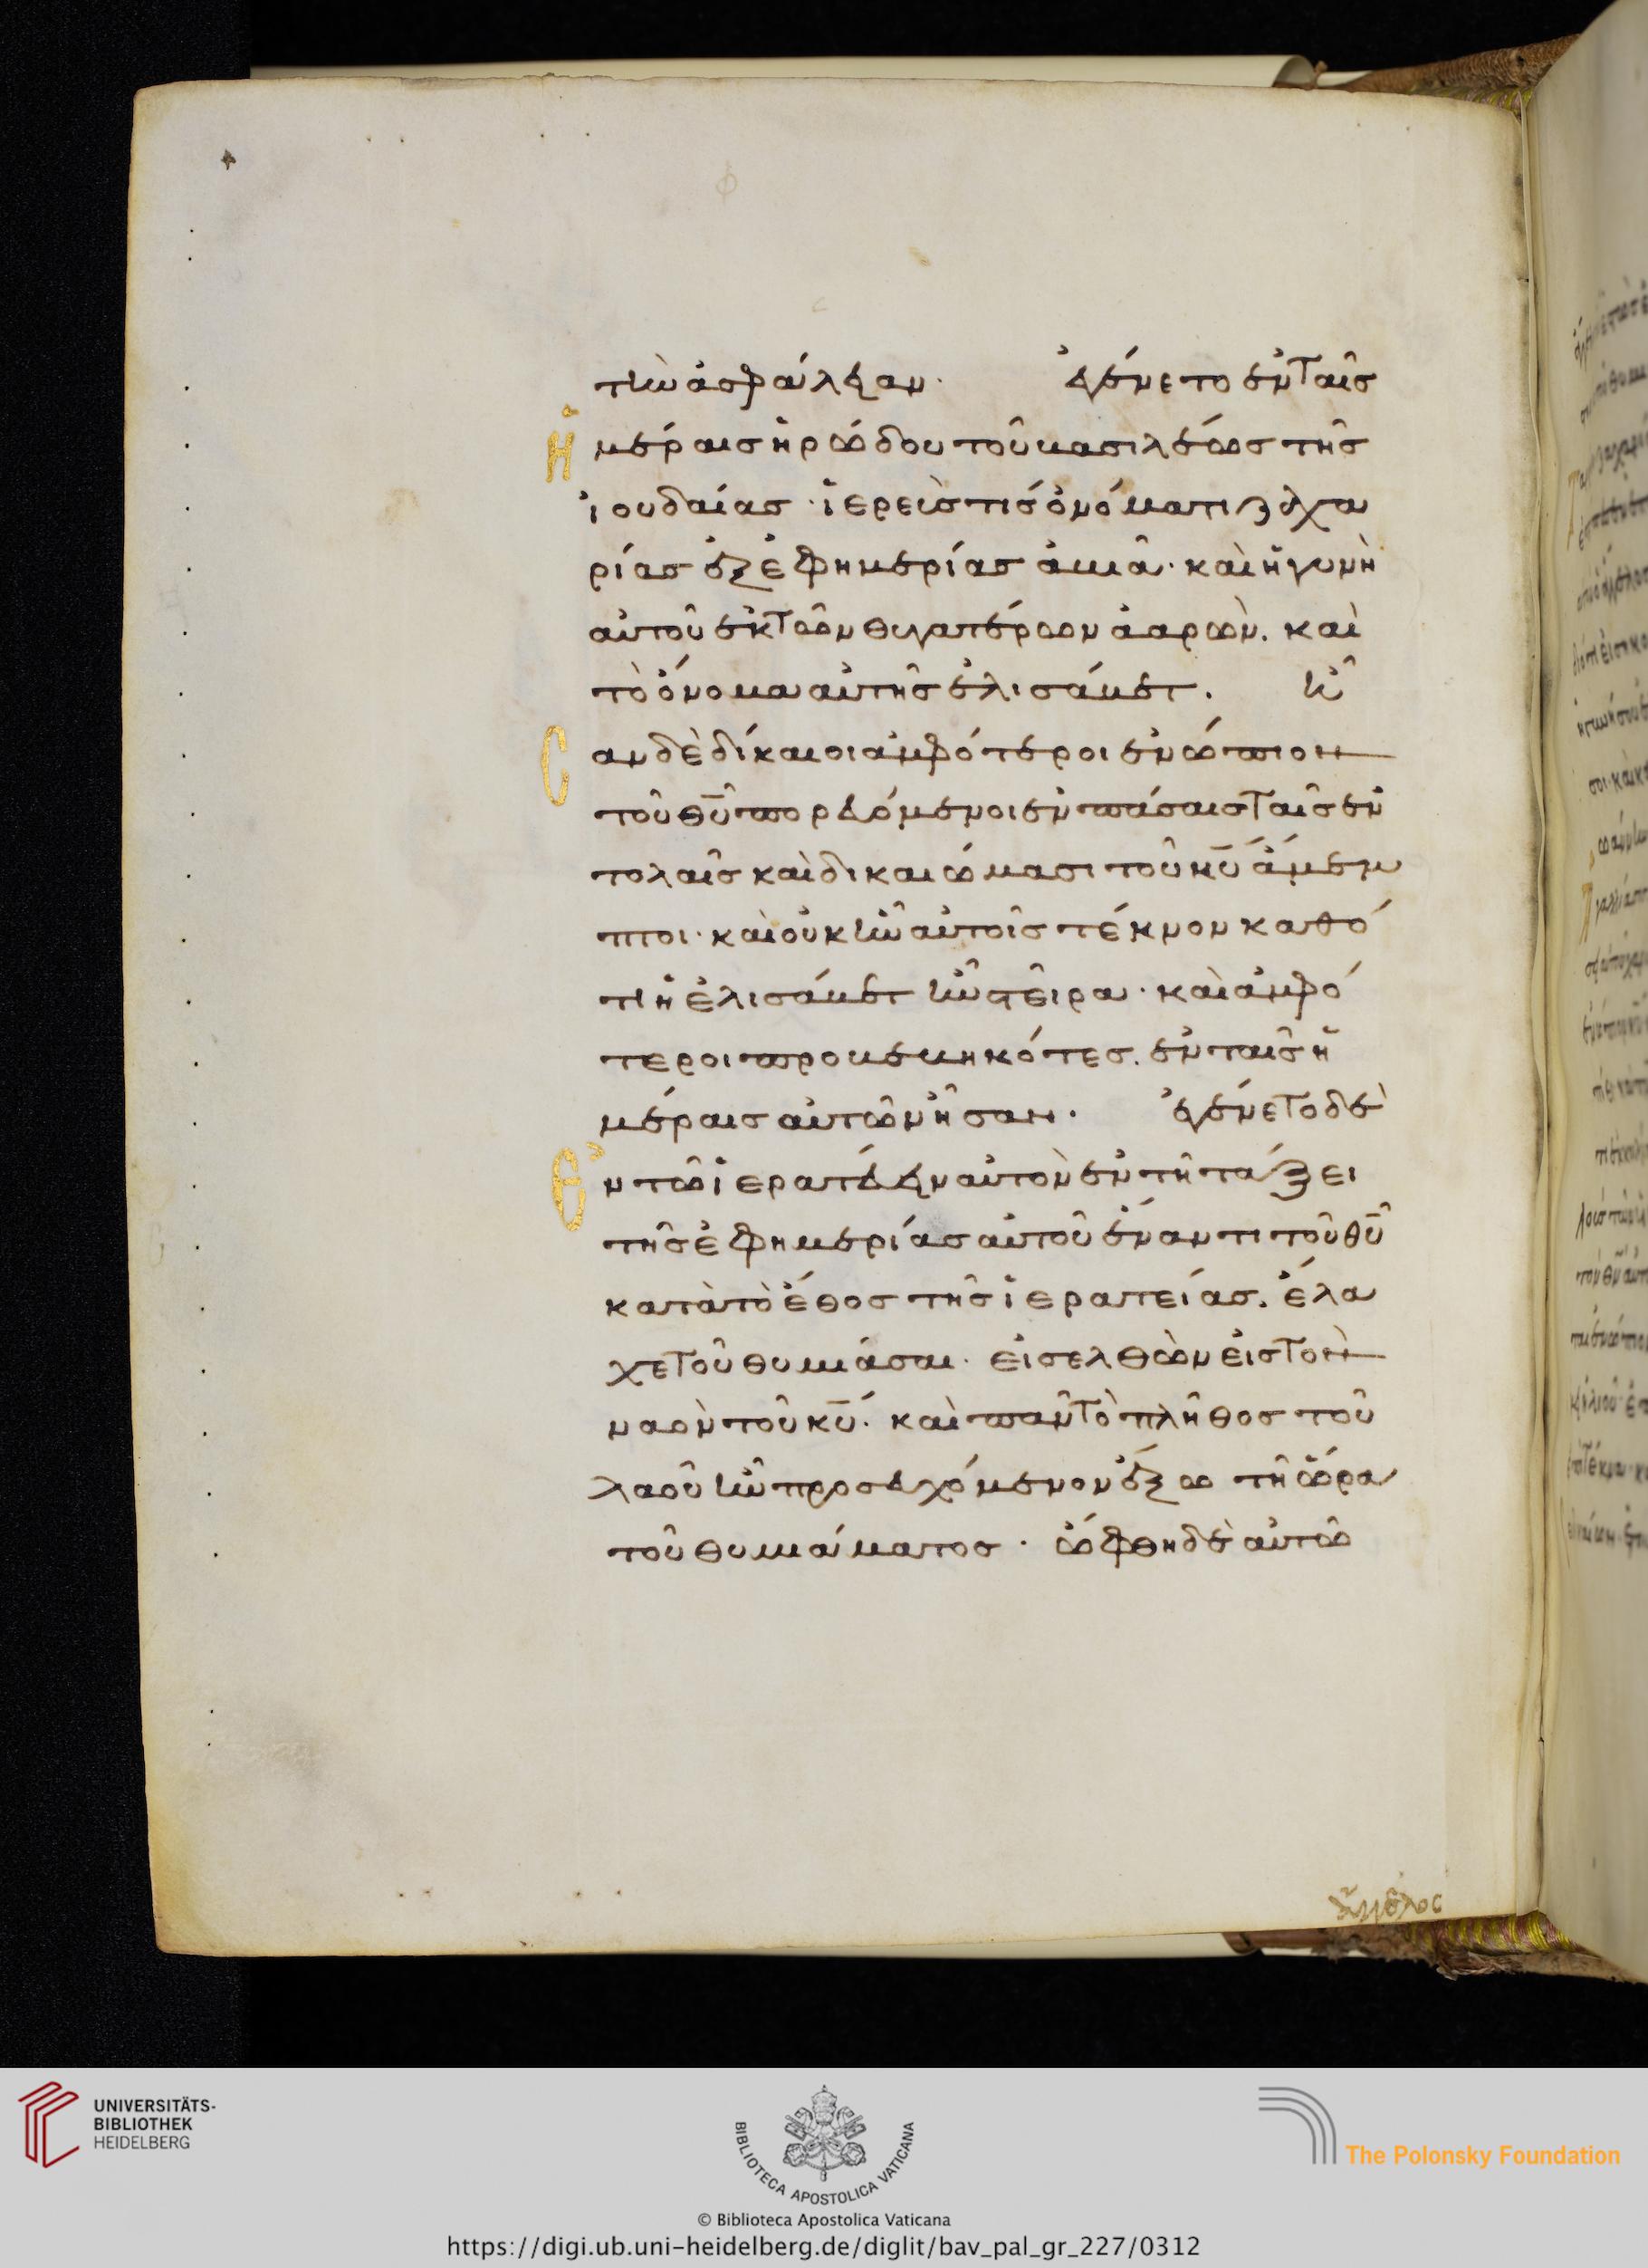 τὴν ἀσφάλειαν· ἐγένετο ἐν ταῖς
ἡμέραις ἡρώδου τοῦ βασιλέως τῆς
ἰουδαίας· ἱερεὺς τίς ὀνόματι ζαχα
ρίας ἐξ ἐφημερίας ἀβιᾶ· καὶ ἡ γυνὴ
αὐτοῦ ἐκ τῶν θυγατέρων ἀαρών. καὶ
τὸ ὄνομα αὐτῆς ἐλισάβετ. ἦ
σαν δὲ δίκαιοι ἀμφότεροι ἐνώπιον
τοῦ θῡ πορευόμενοι ἐν πάσαις ταῖς ἐν
τολαῖς καὶ δικαιώμασι τοῦ κῡ ἄμεμ
πτοι· καὶ οὐκ ἦν αὐτοῖς τέκνον καθό
τι ἡ ἐλισάβετ ἦν στεῖρα· καὶ ἀμφό
τεροι προβεβηκότες. ἐν ταῖς ἡ
μέραις αὐτῶν ἦσαν. ἐγένετο δὲ
ἐν τῶ ἱερατεύειν αὐτὸν ἐν τῆ τάξει
τῆς ἐφημερίας αὐτοῦ ἔναντι τοῦ θῡ
κατὰ τὸ ἔθος τῆς ἱερατείας. ἔλα
χε τοῦ θυμιάσαι· εἰσελθὼν εἰς τὸν
ναὸν τοῦ κῡ· καὶ πᾶν τὸ πλῆθος τοῦ
λαοῦ ἦν προσευχόμενον ἔξω τῆ ὥρα
τοῦ θυμιάματος· ὤφθη δὲ αὐτῶ
ἄγγελος
UNIVERSITÄTS-
BIBLIOTHEK
HEIDELBERG
BIBLIOTECA APOSTOLICA VATICANA
The Polonsky Foundation
© Biblioteca Apostolica Vaticana
https://digi.ub.uni-heidelberg.de/diglit/bav_pal_gr_227/0312